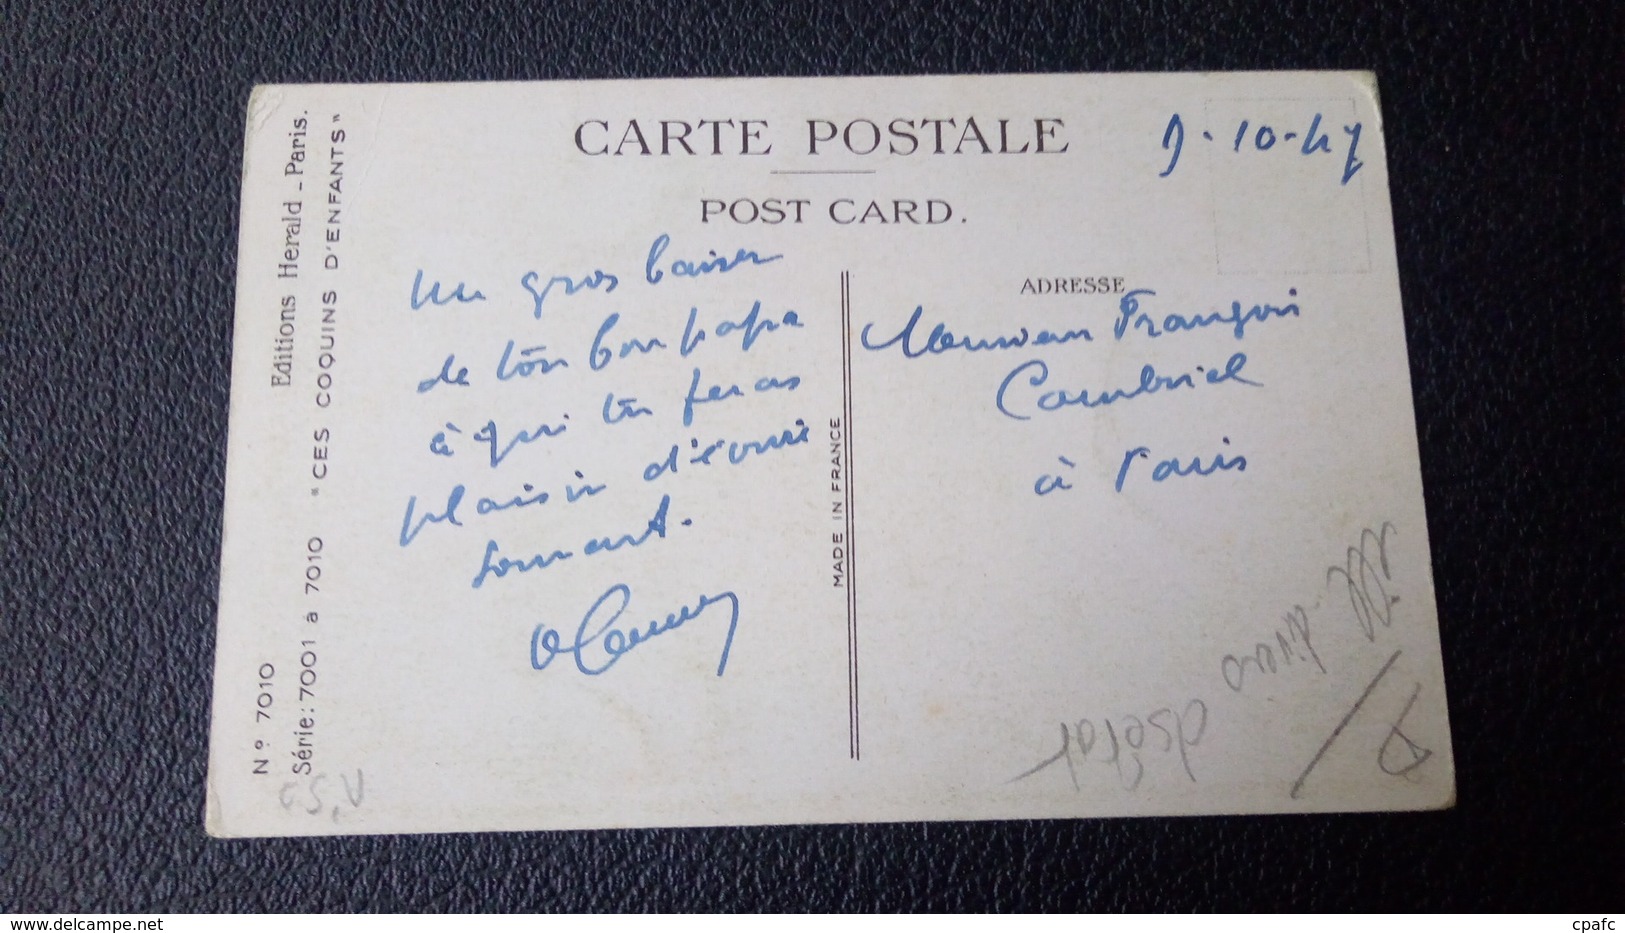 CARTE POSTALE
POST CARD.
9-10-47
Editions Herald - Paris.
N° 7010
Série: 7001 à 7010 "CES COQUINS D'ENFANTS"
un gros baiser
de ton bon papa
à qui tu feras
plaisir d'écrire
souvent.
MADE IN FRANCE
ADRESSE
Monsieur François
à Paris
divers
cpafc